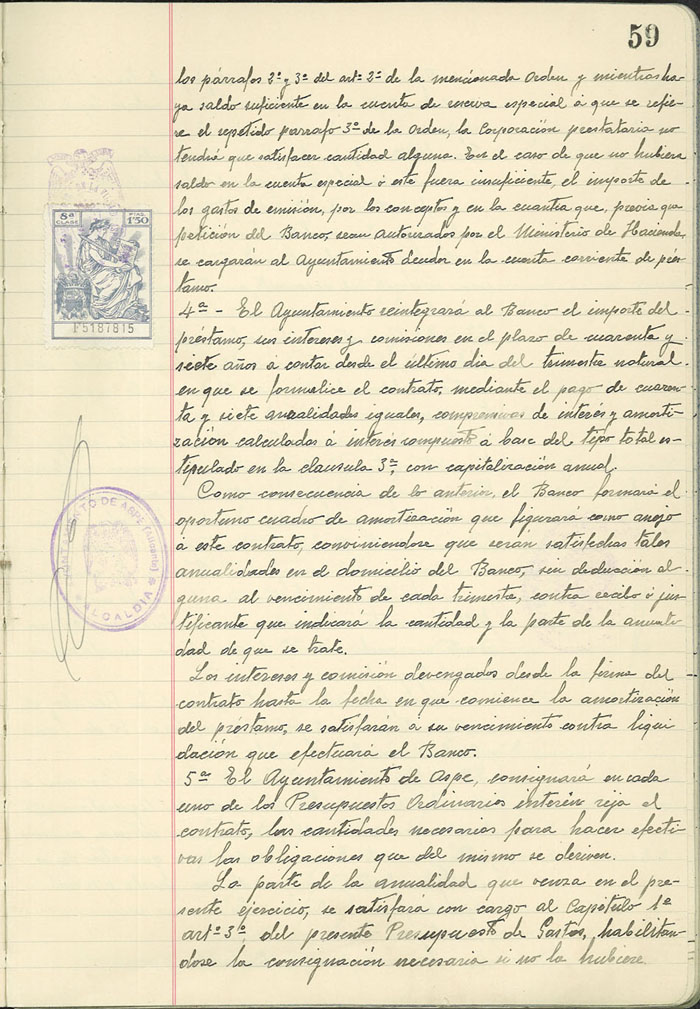 59
los párrafos 2º y 3º del artº 2º de la mencionada Orden y mientras ha-
ya saldo suficiente en la cuenta de reserva especial á que se refie-
re el repetido párrafo 3º de la Orden, la Corporación prestataria no
tendrá que satisfacer cantidad alguna. En el caso de que no hubiere
saldo en la cuenta especial ó este fuera insuficiente, el importe de
los gastos de emisión, por los conceptos y en la cuantia que, previa
petición del Banco, sean autorizados por el Ministerio de Hacienda,
se cargaran al Ayuntamiento deudor en la cuenta corriente de prés-
tamo.
4ª - El Ayuntamiento reintegrará al Banco el importe del
préstamo, sus intereses y comisiones en el plazo de cuarenta y
siete años á contar desde el último dia del trimestre natural
en que se formalice el contrato, mediante el pago de cuaren-
ta y siete anualidades iguales, comprensivas de interés y amorti-
zación calculadas á interés compuesto á base del tipo total es-
tipulado en la clausula 3ª, con capitalización anual.
Como consecuencia de lo anterior, el Banco formará el
oportuno cuadro de amortización que figurará como anejo
á este contrato, conviniendose que serán satisfechas tales
anualidades en el domicilio del Banco, sin deducción al-
guna al vencimiento de cada trimestre, contra recibo ó jus-
tificante que indicará la cantidad y la parte de la anuali-
dad de que se trate.
Los intereses y comisión devengados desde la firma del
contrato hasta la fecha en que comience la amortización
del préstamo, se satisfarán á su vencimiento contra liqui
dación que efectuará el Banco.
5ª El Ayuntamiento de Aspe, consignará en cada
uno de los Presupuestos Ordinarios interin rija el
contrato, las cantidades necesarias para hacer efecti-
vas las obligaciones que del mismo se deriven.
La parte de la anualidad que venza en el pre-
sente ejercicio, se satisfará con cargo al Capítulo 1º
artº 3º, del presente Presupuesto de Gastos, habilitan-
dose la consignación necesaria si no la hubiere
8ª CLASE
PTAS. 1'50
F5187815
AYUNTAMIENTO DE ASPE (Alicante)
ALCALDIA